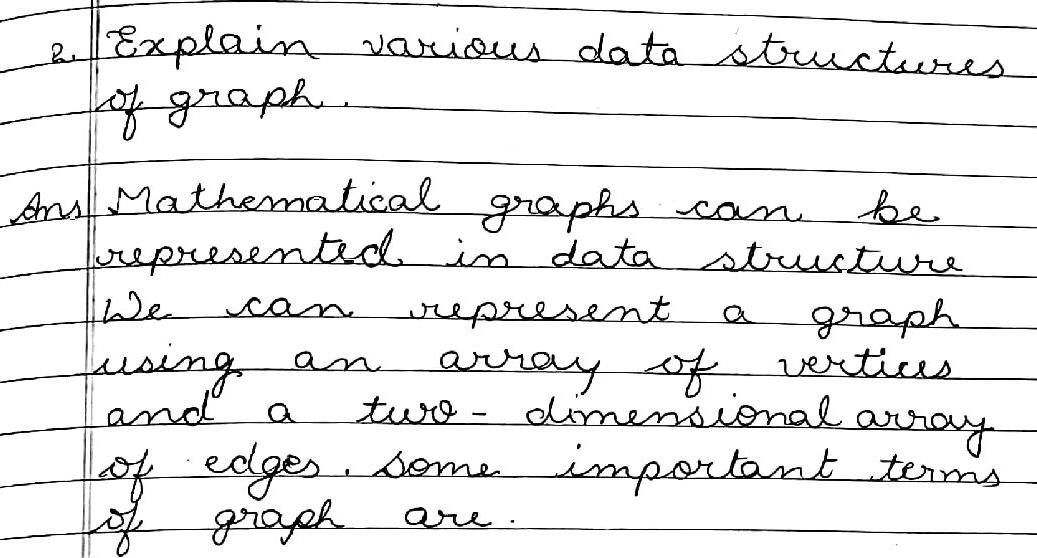 2. Explain various data structures
of graph.
Ans Mathematical graphs can be
represented in data structure
We can represent a graph
using an array of vertices
and a two-dimensional array
of edges. Some important terms
of graph are.